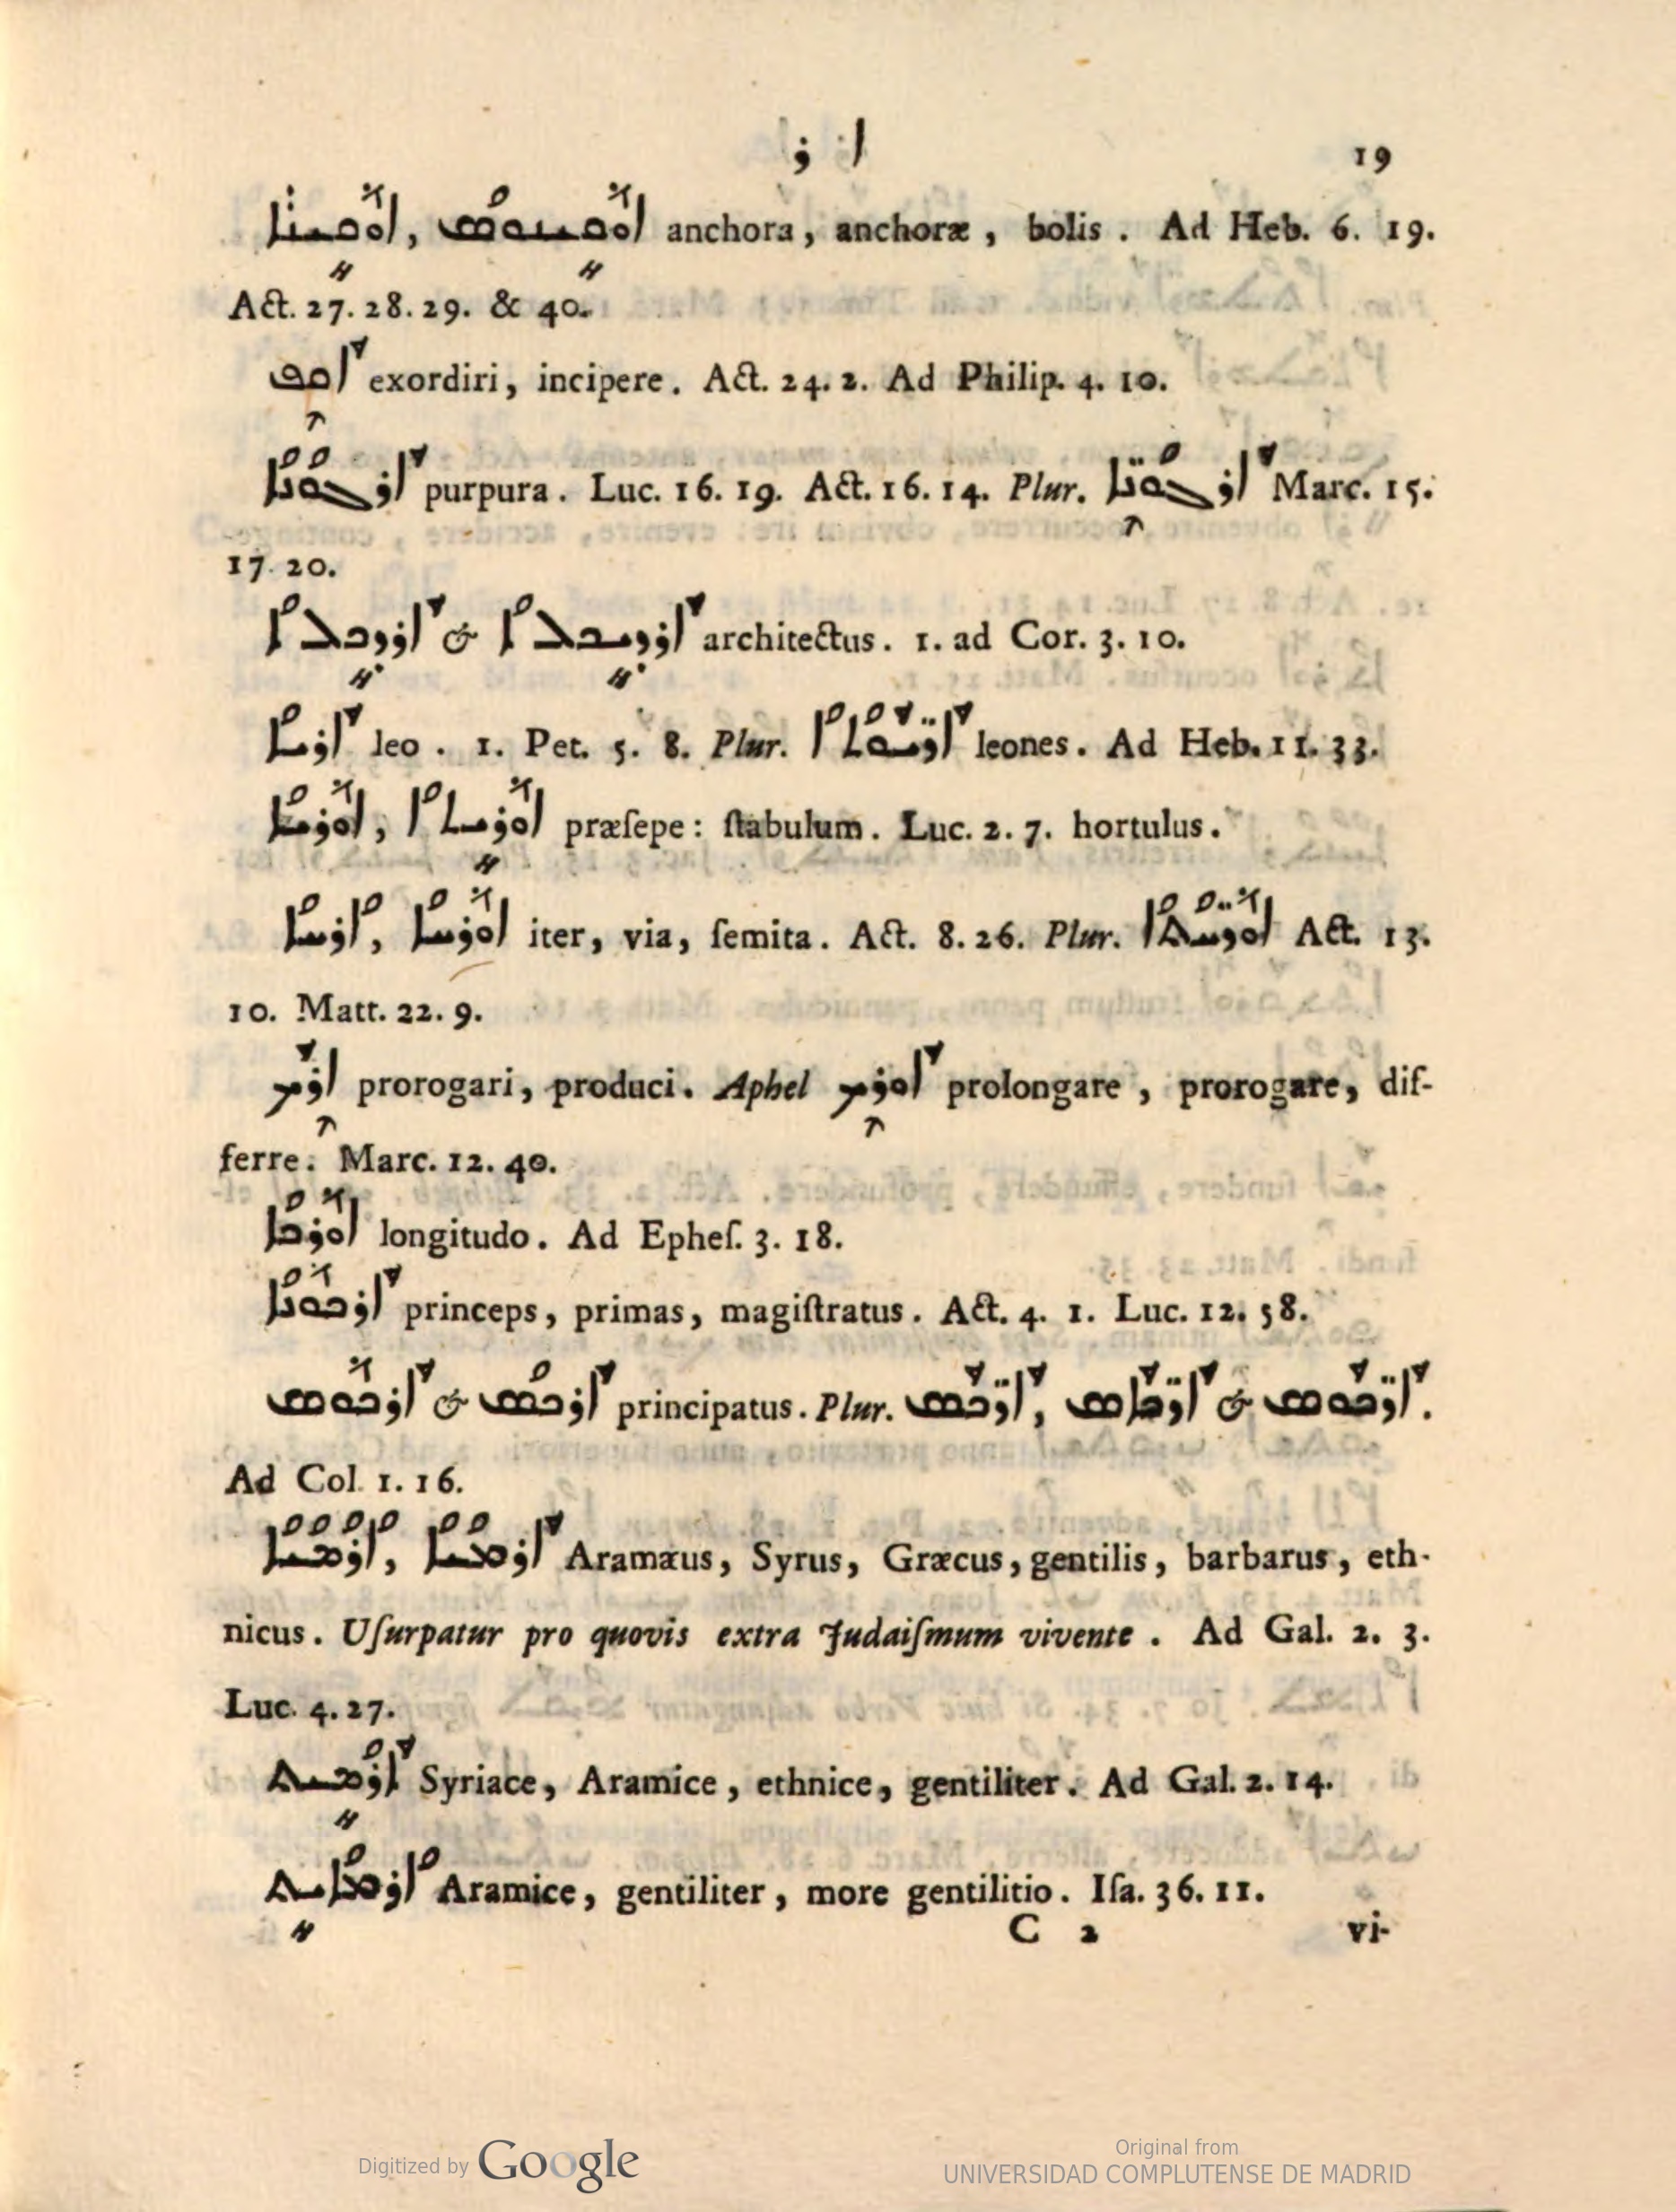 ܐ ܪ 19
ܐܘܩܝܢܐ, ܐܘܩܝܢܘܣ anchora, anchoræ, bolis. Ad Heb. 6. 19.
Act. 27. 28. 29. & 40.
ܐܩܦ exordiri, incipere. Act. 24. 2. Ad Philip. 4. 10.
ܐܪܓܘܢܐ purpura. Luc. 16. 19. Act. 16. 14. Plur. ܐܪܓܘܢܐ Marc. 15.
17. 20.
ܐܪܕܟܠܐ & ܐܪܕܝܟܠܐ architectus. 1. ad Cor. 3. 10.
ܐܪܝܐ leo. 1. Pet. 5. 8. Plur. ܐܪܝܘܬܐ leones. Ad Heb. 11. 33.
ܐܘܪܝܐ, ܐܘܪܝܬܐ præſepe: ſtabulum. Luc. 2. 7. hortulus.
ܐܪܚܐ, ܐܘܪܚܐ iter, via, ſemita. Act. 8. 26. Plur. ܐܘܪܚܬܐ Act. 13.
10. Matt. 22. 9.
ܐܪܟ prorogari, produci. Aphel ܐܘܪܟ prolongare, prorogare, dif-
ferre. Marc. 12. 40.
ܐܘܪܟܐ longitudo. Ad Epheſ. 3. 18.
ܐܪܟܘܢܐ princeps, primas, magiſtratus. Act. 4. 1. Luc. 12. 58.
ܐܪܟܘܣ & ܐܪܟܣ principatus. Plur. ܐܪܟܣ, ܐܪܟܐܣ & ܐܪܟܘܣ.
Ad Col. 1. 16.
ܐܪܡܝܐ, ܐܪܡܝܐ Aramæus, Syrus, Græcus, gentilis, barbarus, eth-
nicus. Uſurpatur pro quovis extra Judaiſmum vivente. Ad Gal. 2. 3.
Luc. 4. 27.
ܐܪܡܝܬ Syriace, Aramice, ethnice, gentiliter. Ad Gal. 2. 14.
ܐܪܡܐܝܬ Aramice, gentiliter, more gentilitio. Iſa. 36. 11.
C 2 vi-
Digitized by Google
Original from
UNIVERSIDAD COMPLUTENSE DE MADRID